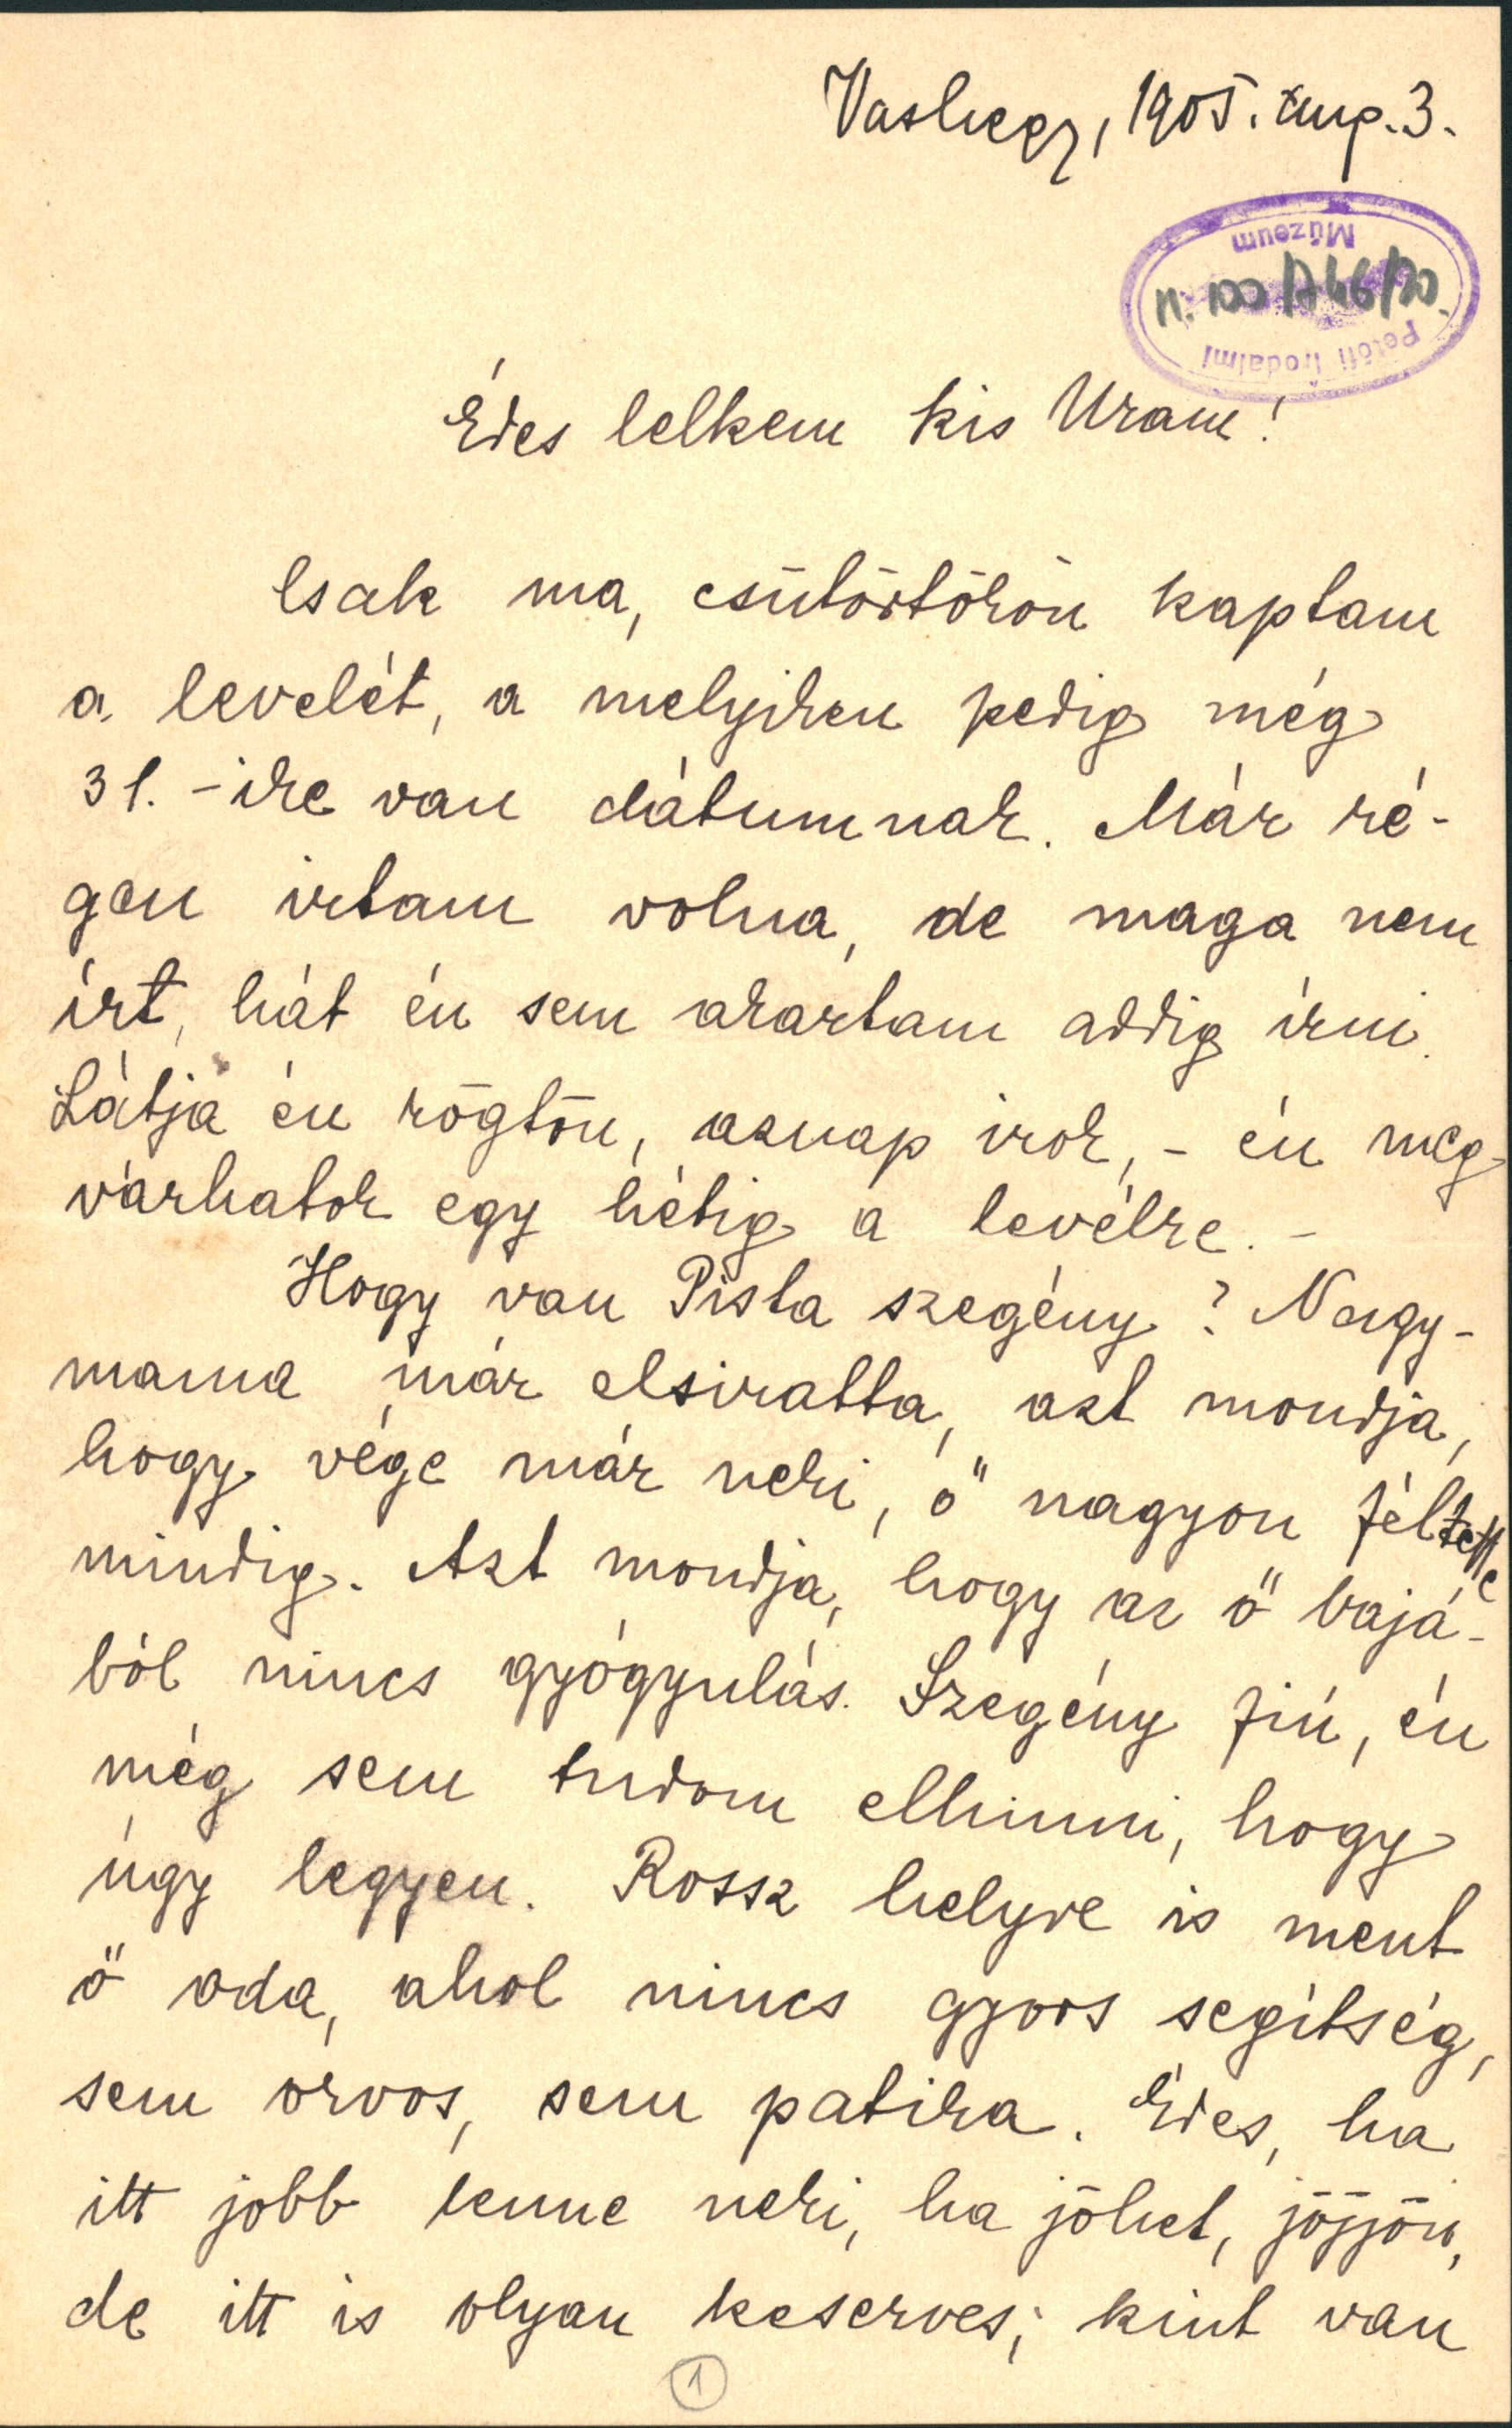 Vashegy, 1905. Aug. 3.
Petőfi Irodalmi
Múzeum
Édes lelkem kis Uram!
Csak ma, csütörtökön kaptam
a levelét, a melyiken pedig még
31.-ike van dátumnak. Már ré-
gen irtam volna, de maga nem
írt, hát én sem akartam addig írni.
Látja én rögtön, aznap irok, - én meg-
várhatok egy hétig a levélre. -
Hogy van Pista szegény? Nagy-
mama már elsiratta, azt mondja,
hogy vége már neki, ő nagyon féltette
mindig. Azt mondja, hogy az ő bajá-
ból nincs gyógyulás. Szegény fiú, én
még sem tudom elhinni, hogy
úgy legyen. Rossz helyre is ment
ő oda, ahol nincs gyors segítség,
sem orvos, sem patika. Édes, ha
itt jobb lenne neki, ha jöhet, jöjjön,
de itt is olyan keserves; kint van
1